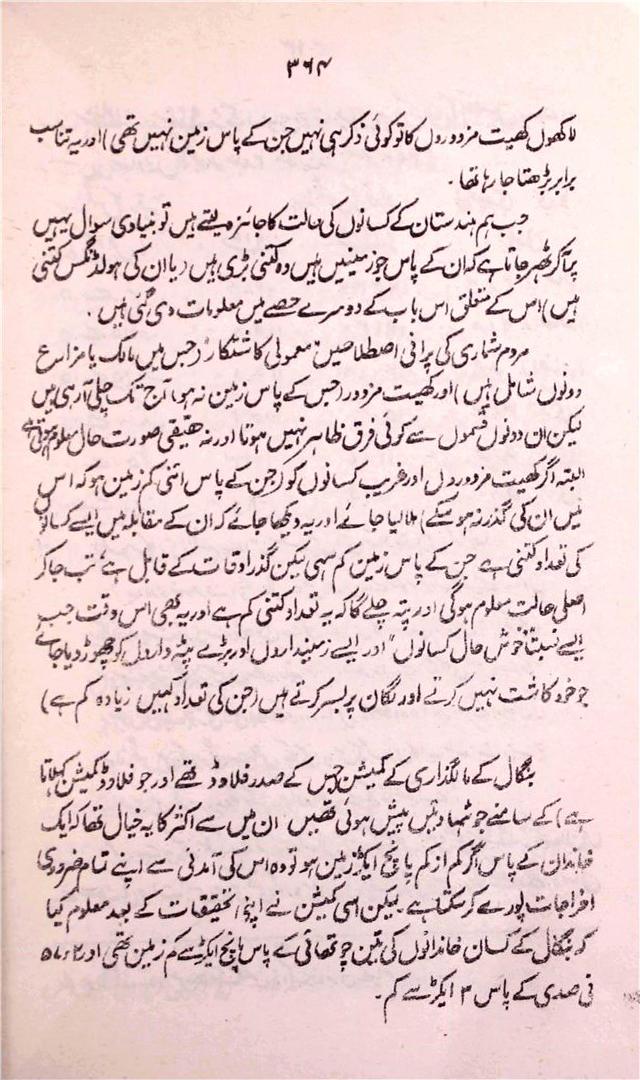 ۳۶۴
لاکھوں کھیت مزدوروں کا تو کوئی ذکر ہی نہیں جن کے پاس زمین نہیں تھی) اور یہ تناسب
برابر بڑھتا جا رہا تھا۔
جب ہم ہندستان کے کسانوں کی حالت کا جائزہ لیتے ہیں تو بنیادی سوال یہیں
پر آکر ٹھہر جاتا ہے کہ ان کے پاس جو زمینیں ہیں وہ کتنی بڑی ہیں (یا ان کی ہولڈنگس کتنی
ہیں) اس کے متعلق اس باب کے دوسرے حصے میں معلومات دی گئی ہیں۔
مردم شماری کی پرانی اصطلاحیں "معمولی کاشتکار" (جس میں مالک یا مزارع
دونوں شامل ہیں) اور کھیت مزدور (جس کے پاس زمین نہ ہو) آج تک چلی آرہی ہیں
لیکن ان دونوں قسموں سے کوئی فرق ظاہر نہیں ہوتا اور نہ حقیقی صورت حال معلوم ہوتی ہے
البتہ اگر کھیت مزدوروں اور غریب کسانوں کو (جن کے پاس اتنی کم زمین ہو کہ اس
میں ان کی گذر نہ ہو سکے) ملا لیا جائے اور یہ دیکھا جائے کہ ان کے مقابلہ میں ایسے کسانوں
کی تعداد کتنی ہے جن کے پاس زمین کم سہی لیکن گذر اوقات کے قابل ہے، تب جاکر
اصلی حالت معلوم ہوگی اور پتہ چلے گا کہ یہ تعداد کتنی کم ہے اور یہ بھی اس وقت جب
ایسے نسبتاً خوش حال کسانوں" اور ایسے زمینداروں اور بڑے پٹہ داروں کو چھوڑ دیا جائے
جو خود کاشت نہیں کرتے اور لگان پر بسر کرتے ہیں (جن کی تعداد کہیں زیادہ کم ہے)
بنگال کے مالگذاری کے کمیشن (جس کے صدر فلاوڈ تھے اور جو فلاوڈ کمیشن کہلاتا
ہے) کے سامنے جو شہادتیں پیش ہوئی تھیں ان میں سے اکثر کا یہ خیال تھا کہ ایک
خاندان کے پاس اگر کم از کم پانچ ایکڑ زمین ہو تو وہ اس کی آمدنی سے اپنے تمام ضروری
اخراجات پورے کر سکتا ہے۔ لیکن اسی کمیشن نے اپنی تحقیقات کے بعد معلوم کیا
کہ بنگال کے کسان خاندانوں کی تین چوتھائی کے پاس پانچ ایکڑ سے کم زمین تھی اور ۵۷٫۲
فی صدی کے پاس ۳ ایکڑ سے کم۔